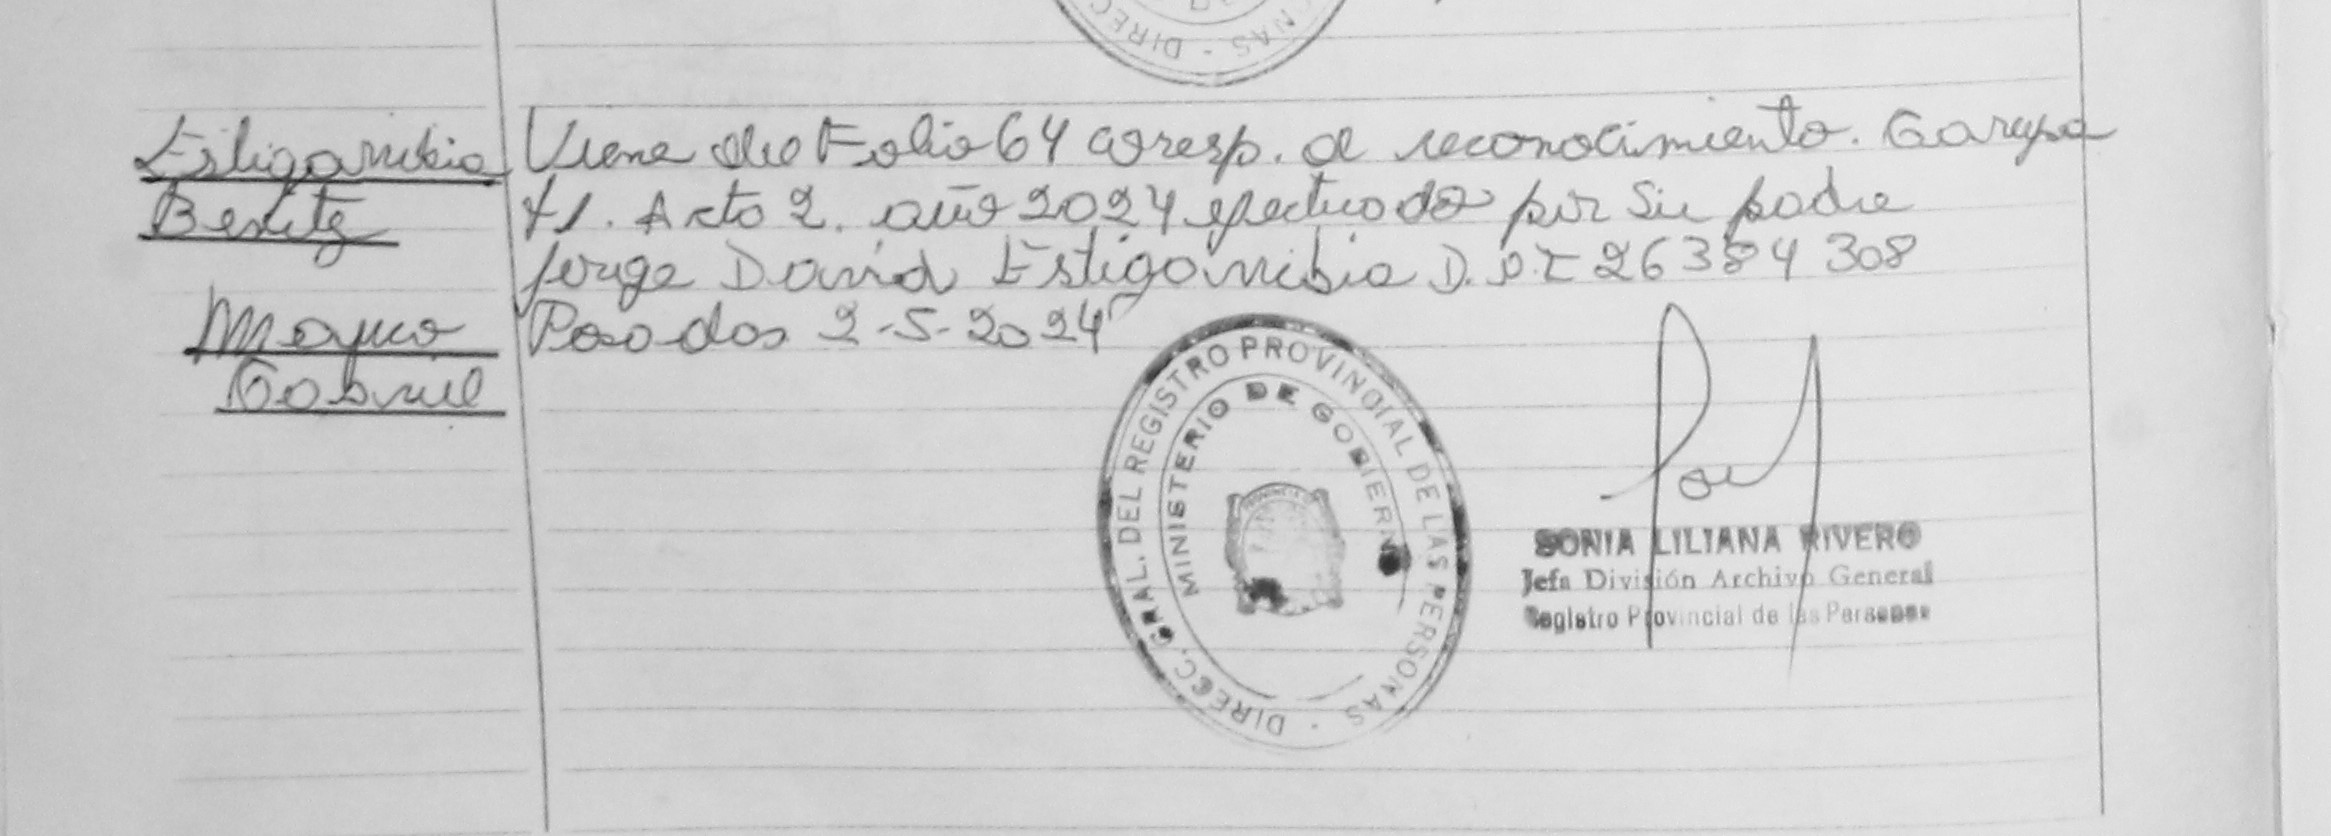 NAS - DIREC
Estigarribia
Benitez
Mayco
Gabriel
Viene del Folio 64 corresp. al reconocimiento. Garupa
T1. Acta 2. año 2024 efectuado por su padre
Jorge David Estigarribia D.N.I 26384308
Posadas 2-5-2024
DIRECC. GRAL. DEL REGISTRO PROVINCIAL DE LAS PERSONAS -
MINISTERIO DE GOBIERNO
SONIA LILIANA RIVERO
Jefa División Archivo General
Registro Provincial de las Personas